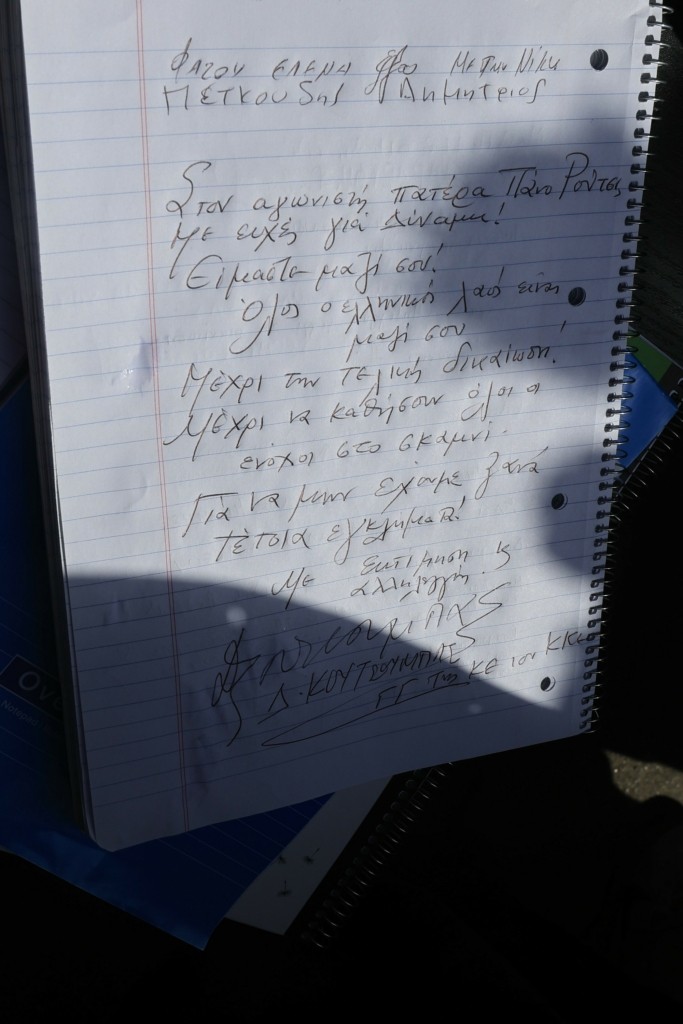 ΦΑΤΟΥ ΕΛΕΝΑ Εξω ΜΕ ΤΗΝ ΝΙΚΗ
ΠΕΤΚΟΥΔης Δημητριος
Στον αγωνιστή πατέρα Πάνο Ρούτσι
Με ευχές για Δύναμη!
Είμαστε μαζί σου!
Όλος ο ελληνικός λαός είναι
μαζί σου
Μέχρι την τελική δικαίωση!
Μέχρι να καθήσουν όλοι οι
ένοχοι στο σκαμνί.
Για να μην έχουμε ξανά
τέτοια εγκλήματα!
Με εκτίμηση κ
αλληλεγγύη.
Δ. ΚΟΥΤΣΟΥΜΠΑΣ
ΓΓ της ΚΕ του ΚΚΕ